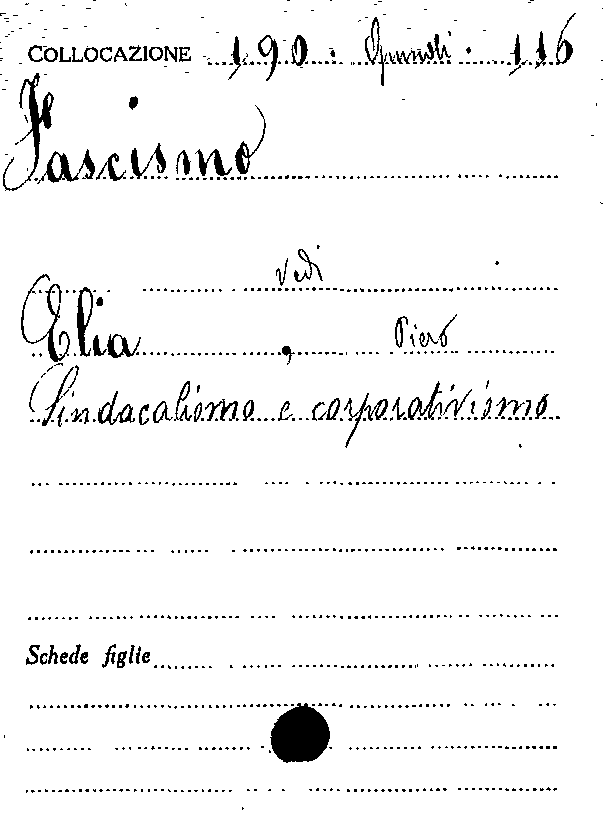 COLLOCAZIONE 190. . 116
Fascismo
vedi
Elia, Piero
Sindacalismo e corporativismo
Schede figlie